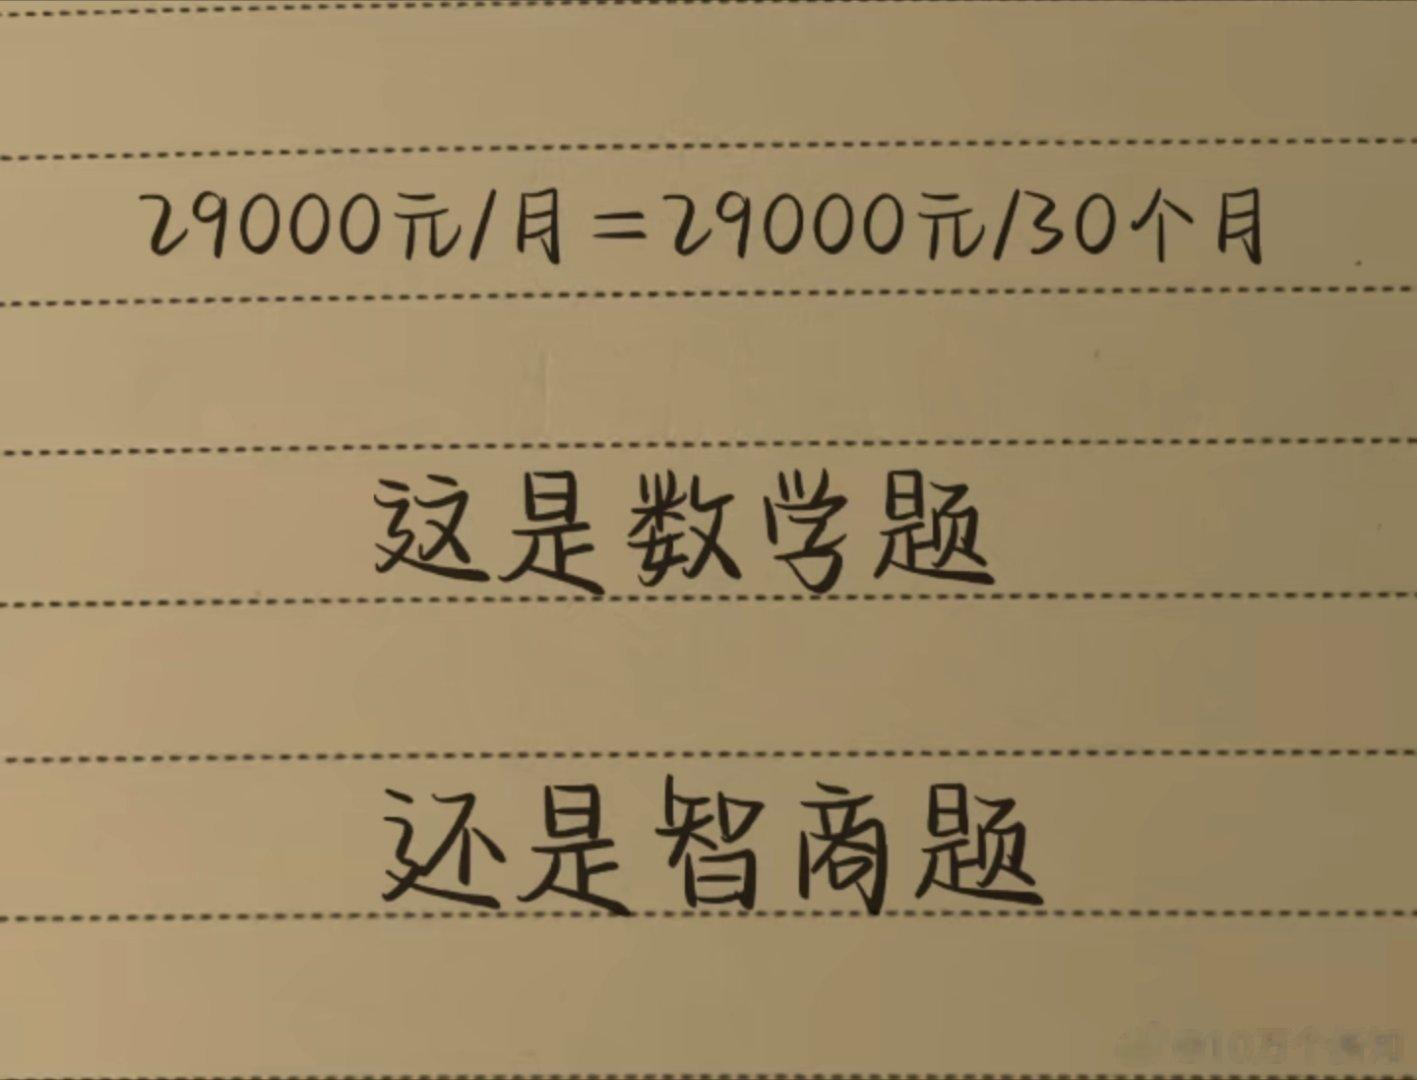 29000元/月=29000元/30个月
这是数学题
还是智商题